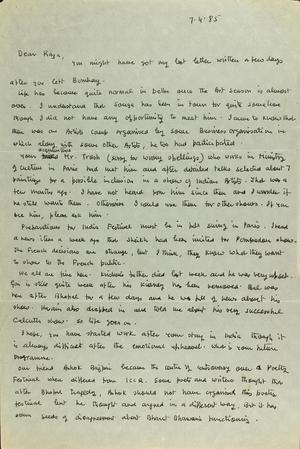 7.4.85
Dear Raza,
You might have got my last letter written a few days
after you left Bombay.
Life has become quite normal in Delhi once the Art season is almost
over. I understand that Souza has been in town for quite sometime
though I did not have any opportunity to meet him. I came to know that
there was an Artists Camp organised by some Business organisation in
which along with some other Artists, he too had participated.
Your Mr. Trosh (sorry for wrong spellings) who works in Ministry
of Culture in Paris had met him and after detailed talks selected about 7
paintings for a possible inclusion in a show of Indian Artists. That was a
few months ago. I have not heard from him since then and I wonder if
he still wants them. Otherwise I could use them for other shows. If you
see him, please ask him.
Preparations for India Festival must be in full swing in Paris. I read
a news item a week ago that Sheikh had been invited for Pompidou show.
The French decisions are strange, but I think, they know what they want
to show to the French public.
We all are fine here. Krishen's father died last week and he was very upset.
Gai is still quite weak after his kidney has been removed. Bal was
here after Bhopal for a few days and he was full of news about his
show. Husain also dropped in and told me about his very successful
Calcutta show. So life goes on.
I hope, you have started work after your stay in India though it
is always difficult after the emotional upheaval. What is your future
programme.
Our friend Ashok Bajpai became the centre of controversy over a Poetry
Festival when differed from ICCR. Some poets and writers thought that
after Bhopal tragedy, Ashok should not have organised this poetry
festival but he thought and argued in a different way. But it has
sown seeds of disagreement about Bharat Bhawan's functioning.